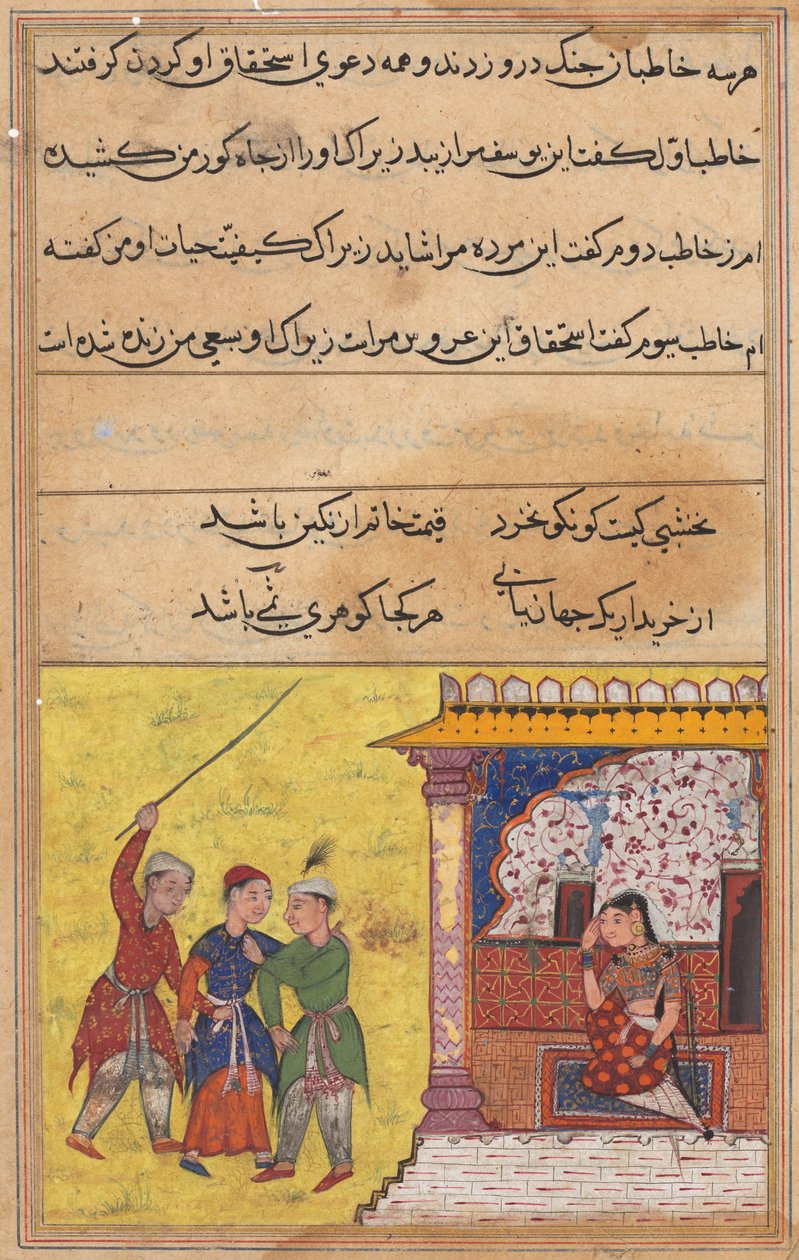 هر سه خاطبان جنک در وزدند و همه دعوي استحقاق او کردن کرفتند
خاطب اوّل کفت این یوسف مرا زیبد زیراک او را از جاه کور من کشیده
ام ز خاطب دوم کفت این مرده مرا شاید زیراک کیفیّت حیات او من کفته
ام خاطب سیوم کفت استحقاق این عروس مراست زیراک او بسعي من زنده شده است
نخشبي کیست کو نکو نخرد قیمت خاتم از نکین باشد
از خریدار یک جهان یابي هر کجا کوهري ثمی باشد